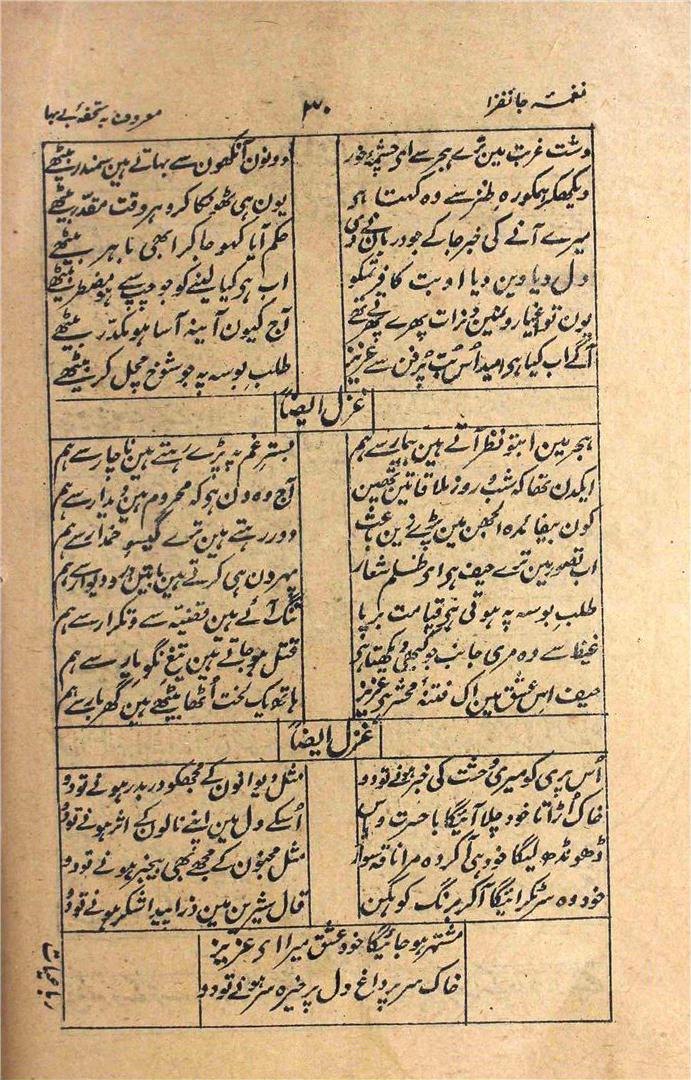 نغمہ جانفزا ۳۰ معروف بہ تحفۂ بے بہا
دشت غربت مین ترے ہجر سے ای چشمۂ خور دونون آنکھون سے بہاتے ہین سمندر بیٹھے
دیکھکر ہمکو رہ طنز سے وہ کہتا ہو یون ہی ٹھونکا کرو ہر وقت مقدر بیٹھے
میرے آنے کی خبر جا کے جو دربان نے دی حکم آیا کہو جا کر ابھی باہر بیٹھے
دل دیا دین دیا او بت کافر تمکو اب ہو کیا لینے کو جو چپ سے ہو مضطر بیٹھے
یون تو اغیار و مین دنرات پھرے پھرتے تھے آج کیون آئینہ آسا ہو مکدر بیٹھے
آگے اب کیا ہو امید اُس بت پُر فن سے عزیز طلب بوسہ پہ جو شوخ مچل کر بیٹھے
غزل ایضاً
ہجر مین ابتو نظر آتے ہین بیمار سے ہم بستر غم پہ پڑے رہتے ہین ناچار سے ہم
ایکدن تھا کہ شب و روز ملاقاتین تھین آج وہ دن ہو کہ محروم ہین دیدار سے ہم
کون بیفائدہ الجھن مین پڑے دین عبث دور رہتے ہین ترے گیسوِ خمدار سے ہم
اب تصور مین ترے حیف ہو ای ظلم شعار پہرون ہی کرتے ہین باتین در و دیوار سے ہم
طلب بوسہ پہ ہوتی ہو قیامت برپا تنگ آئے ہین تقضیہ سے و تکرار سے ہم
غیظ سے وہ مری جانب جو کبھی دیکھتا ہو قتل ہو جاتے ہین تیغ نگہِ یار سے ہم
حیف اس عشق مین اک فتنۂ محشر کی عزیز ہاتھ یک لخت اُٹھا بیٹھے ہین گھر بار سے ہم
غزل ایضاً
اُس پری کو میری وحشت کی خبر ہونے تو دو مثل دیوانون کے مجھکو در بدر ہونے تو دو
خاک اُڑاتا خود چلا آئیگا با حسرت و یاس اُسکے دل مین اپنے نالون کے اثر ہونے تو دو
ڈھونڈھ لیگا خود ہی آکر وہ مرا ناقہ سوار مثل مجنون کے مجھے بھی بیخبر ہونے تو دو
خود وہ سر ٹکرائیگا آکر برنگ کوہکن قال شیرین مین ذرا پیدا شکر ہونے تو دو
مشتہر ہو جائیگا خود عشق میرا ای عزیز
خاک سر پر داغ دل پر خیرہ سر ہونے تو دو